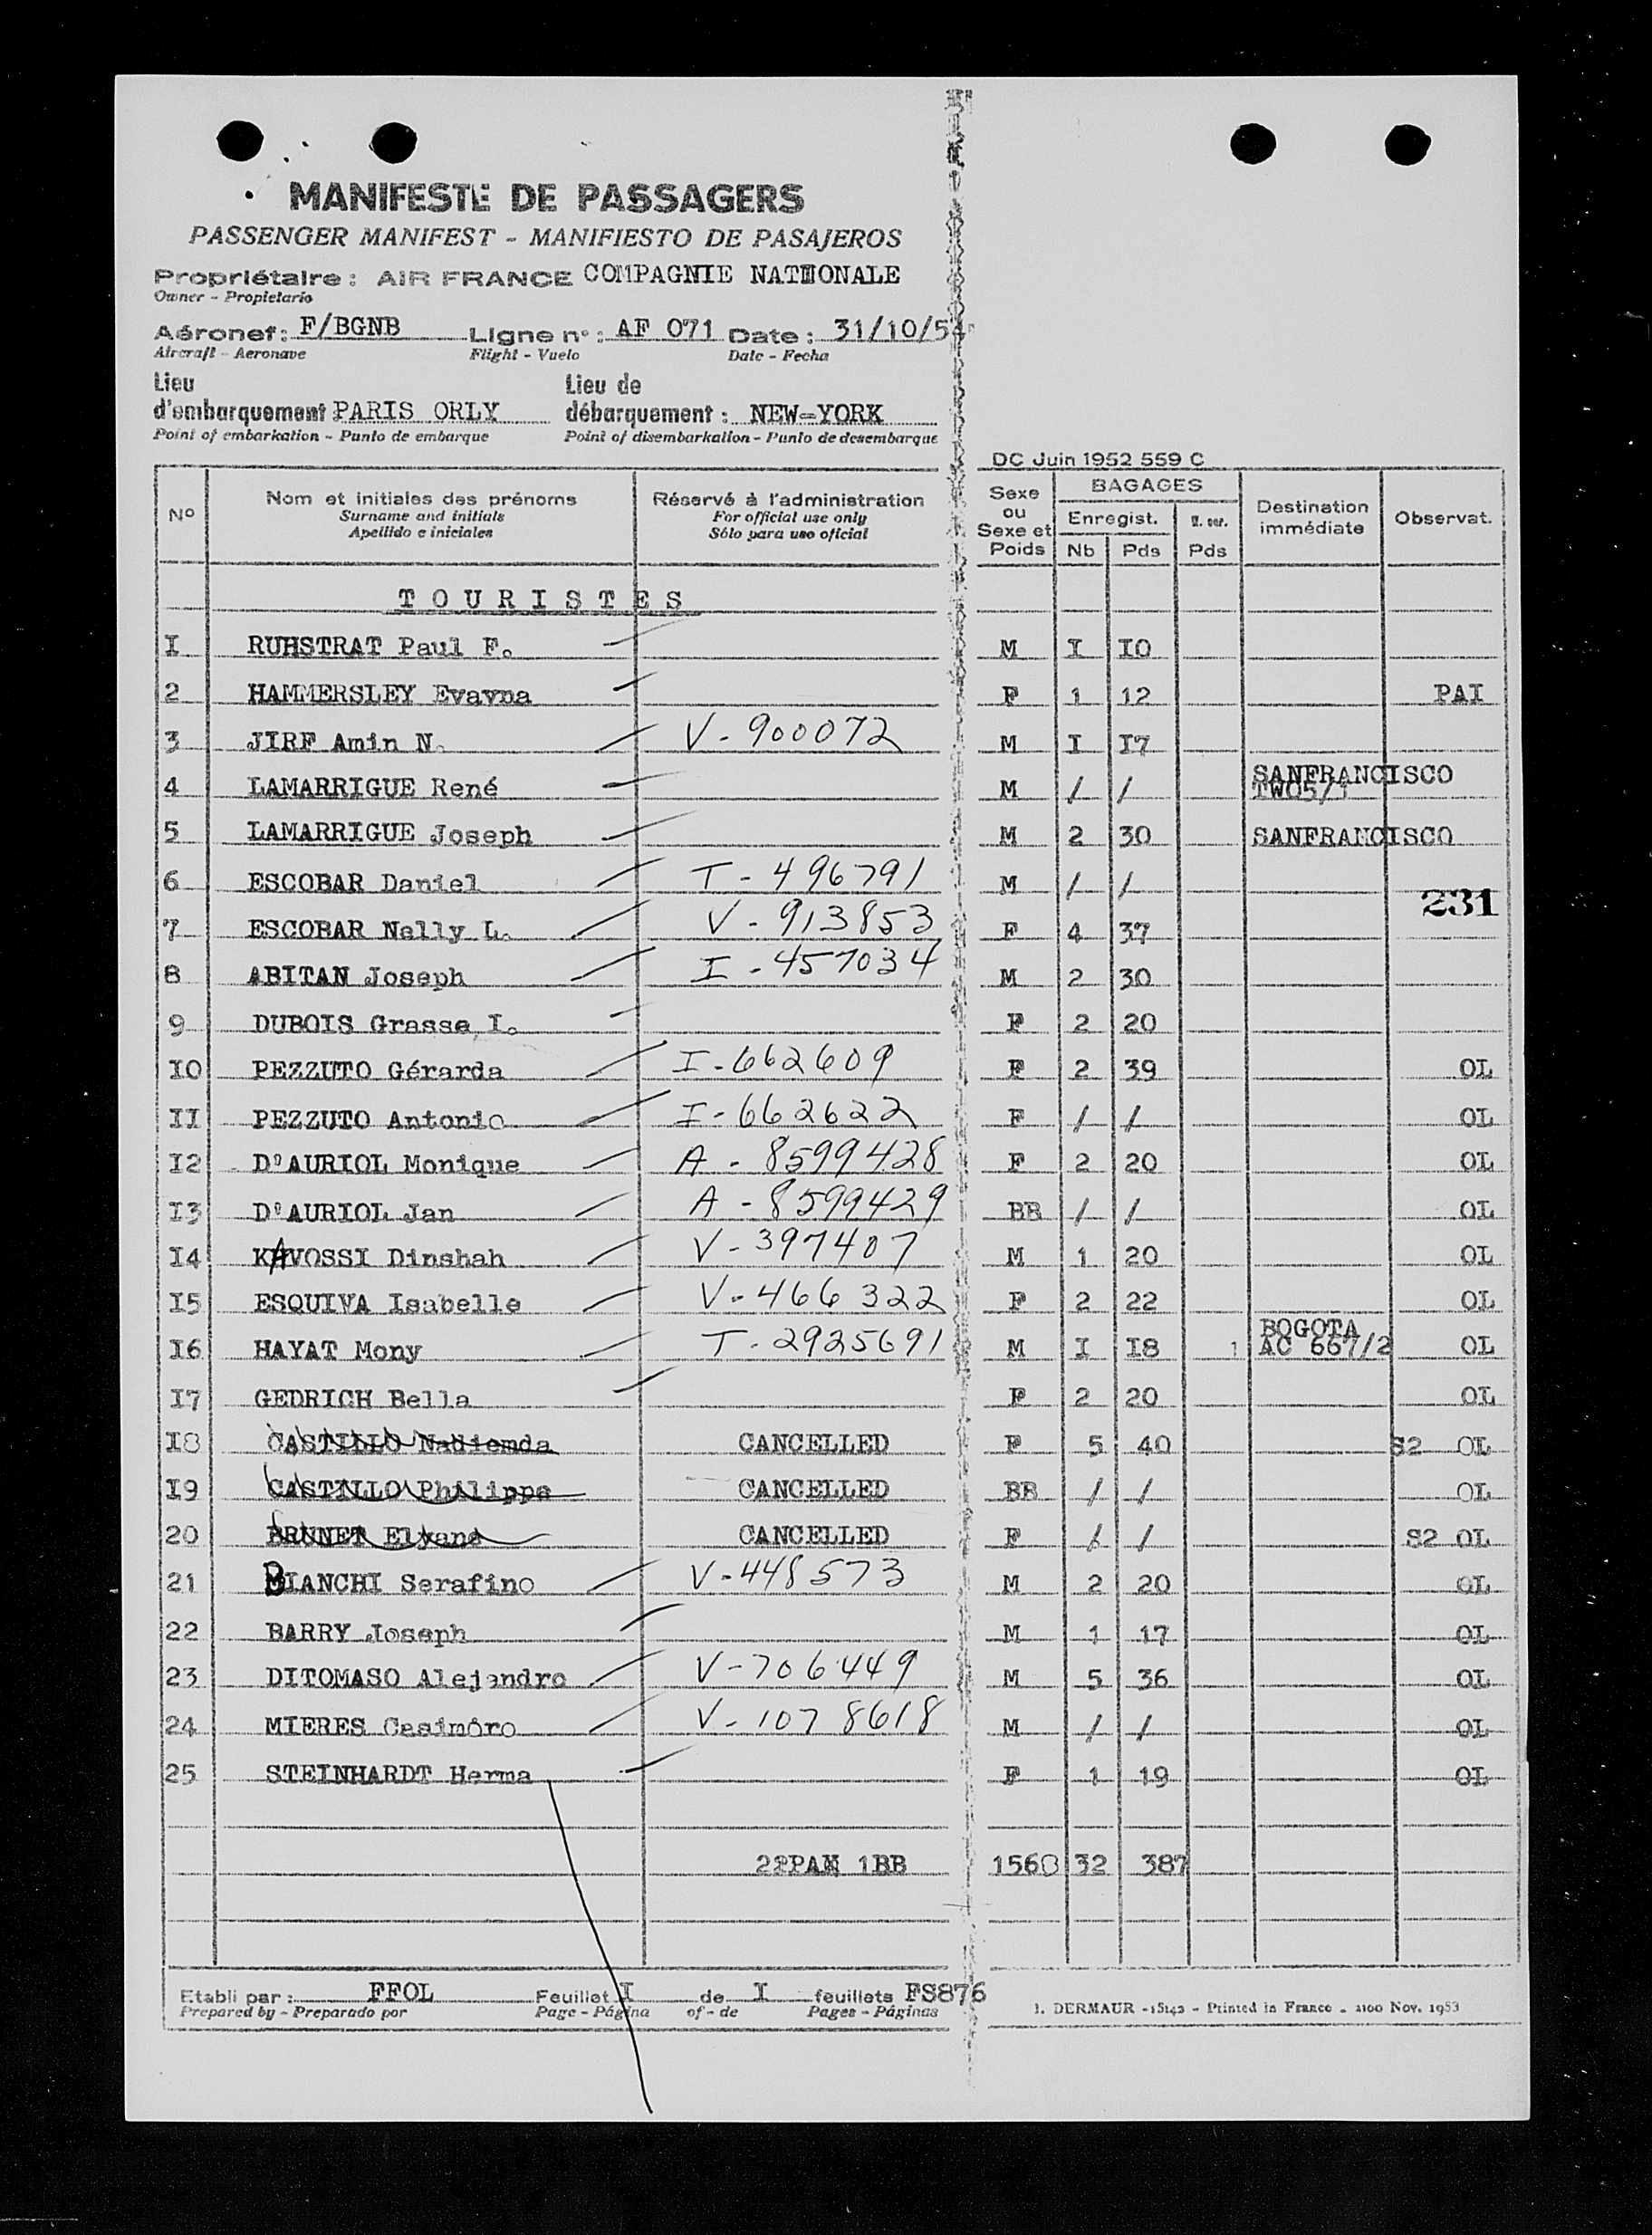 MANIFESTE DE PASSAGERS
PASSENGER MANIFEST - MANIFIESTO DE PASAJEROS
Propriétaire : AIR FRANCE COMPAGNIE NATIONALE
Owner - Propietario
Aéronef : F/BGNB Ligne n° : AF 071 Date : 31/10/54
Aircraft - Aeronave Flight - Vuelo Date - Fecha
Lieu d'embarquement PARIS ORLY Lieu de débarquement : NEW-YORK
Point of embarkation - Punto de embarque Point of disembarkation - Punto de desembarque
DC Juin 1952 559 C
N° Nom et initiales des prénoms Réservé à l'administration Sexe ou Sexe et Poids BAGAGES Destination immédiate Observat.
Surname and initials For official use only Enregist.
Apellido e iniciales Sólo para uso oficial Nb Pds Pds
TOURISTES
I RUHSTRAT Paul F. M I IO
2 HAMMERSLEY Evayna F 1 12 PAI
3 JIRF Amin N. V-900072 M I I7
4 LAMARRIGUE René M / / SANFRANCISCO
5 LAMARRIGUE Joseph M 2 30 SANFRANCISCO
6 ESCOBAR Daniel T-496791 M / /
231
7 ESCOBAR Nelly L. V-913853 F 4 37
8 ABITAN Joseph I-457034 M 2 30
9 DUBOIS Grasse I. F 2 20
IO PEZZUTO Gérarda I-662609 F 2 39 OL
II PEZZUTO Antonio I-662622 F / / OL
I2 D'AURIOL Monique A-8599428 F 2 20 OL
I3 D'AURIOL Jan A-8599429 BB / / OL
I4 KAVOSSI Dinshah V-397407 M 1 20 OL
I5 ESQUIVA Isabelle V-466322 F 2 22 OL
I6 HAYAT Mony T-2925691 M I I8 1 BOGOTA AC 667/2 OL
I7 GEDRICH Bella F 2 20 OL
I8 CASTILLO CANCELLED F 5 40 S2 OL
I9 CASTILLO Philippe CANCELLED BB / / OL
20 BRUNET Elyane CANCELLED F / / S2 OL
21 BIANCHI Serafino V-448573 M 2 20 OL
22 BARRY Joseph M 1 17 OL
23 DITOMASO Alejandro V-706449 M 5 36 OL
24 MIERES Casimôro V-1078618 M / / OL
25 STEINHARDT Herma F 1 19 OL
1BB 1568 32 387
Etabli par : FFOL Feuillet I de I feuillets FS876
Prepared by - Preparado por Page - Página of - de Pages - Páginas
I. DERMAUR - 15142 - Printed in France - 2100 Nov. 1953